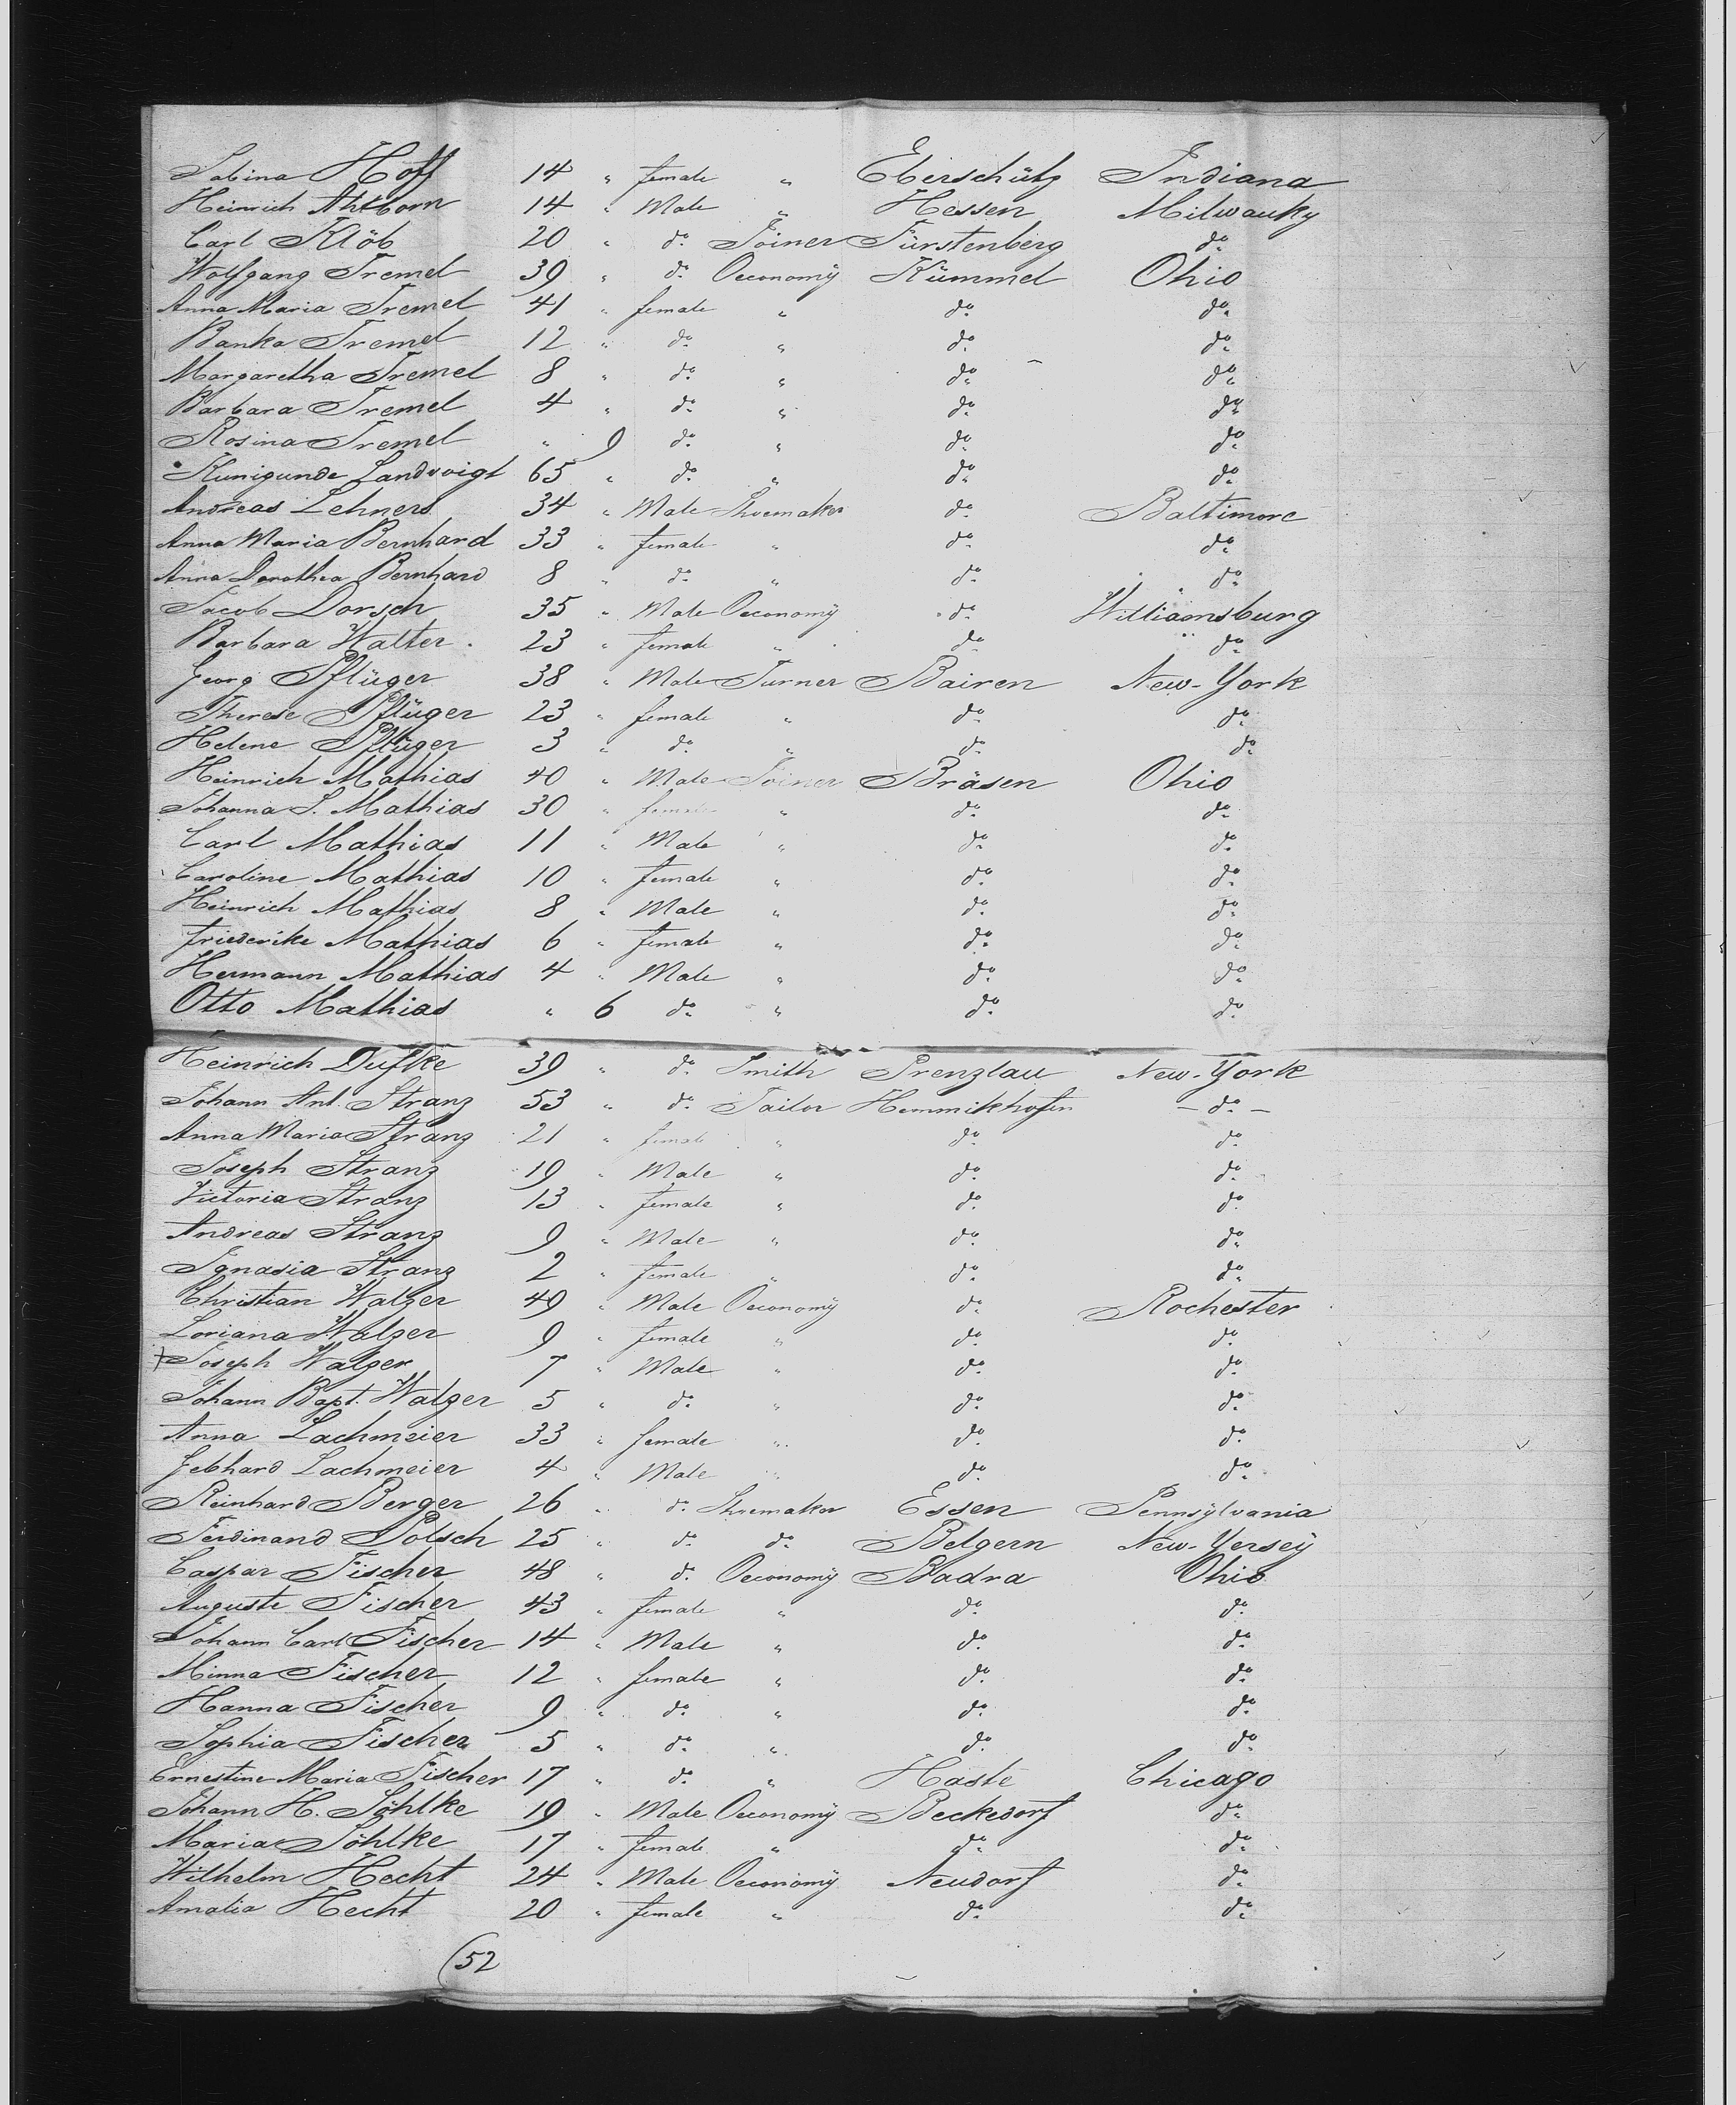 Sabina Hoff 14 " female " Eberschütz Indiana
Heinrich Ahlborn 14 " Male " Hessen Milwauky
Carl Klöb 20 " do. Joiner Fürstenberg do.
Wolfgang Tremel 39 " do. Oeconomÿ Kümmel Ohio
Anna Maria Tremel 41 " female " do. do.
Banka Tremel 12 " do. " do. do.
Margaretha Tremel 8 " do. " do. do.
Barbara Tremel 4 " do. " do. do.
Rosina Tremel " 9 do. " do. do.
Kunigunde Landvoigt 65 " do. " do. do.
Andreas Lehners 34 " Male Shoemaker do. Baltimore
Anna Maria Bernhard 33 " female " do. do.
Anna Dorothea Bernhard 8 " do. " do. do.
Jacob Dorsch 35 " Male Oeconomÿ do. Williamsburg
Barbara Walter 23 " female " do. do.
Georg Pflüger 38 " Male Turner Bairen New-York
Therese Pflüger 23 " female " do. do.
Helene Pflüger 3 " do. " do. do.
Heinrich Mathias 40 " Male Joiner Bräsen Ohio
Johanna S. Mathias 30 " female " do. do.
Carl Mathias 11 " Male " do. do.
Caroline Mathias 10 " female " do. do.
Heinrich Mathias 8 " Male " do. do.
Friederike Mathias 6 " female " do. do.
Hermann Mathias 4 " Male " do. do.
Otto Mathias " 6 do. " do. do.
Heinrich Dufke 39 " do. Smith Prenzlau New-York
Johann Ant. Stranz 53 " do. Tailor Hemmikhofen - do. -
Anna Maria Stranz 21 " female " do. do.
Joseph Stranz 19 " Male " do. do.
Victoria Stranz 13 " female " do. do.
Andreas Stranz 9 " Male " do. do.
Ignasia Stranz 2 " female " do. do.
Christian Walzer 49 " Male Oeconomÿ do. Rochester
Loriana Walzer 9 " female " do. do.
+ Joseph Walzer 7 " Male " do. do.
Johann Bapt. Walzer 5 " do. " do. do.
Anna Lachmeier 33 " female " do. do.
Gebhard Lachmeier 4 " Male " do. do.
Reinhard Berger 26 " do. Shoemaker Essen Pennsÿlvania
Ferdinand Polsch 25 " do. do. Belgern New-Yerseÿ
Caspar Fischer 48 " do. Oeconomÿ Badra Ohio
Auguste Fischer 43 " female " do. do.
Johann Carl Fischer 14 " Male " do. do.
Minna Fischer 12 " female " do. do.
Hanna Fischer 9 " do. " do. do.
Sophia Fischer 5 " do. " do. do.
Ernestine Maria Fischer 17 " do. " Haste Chicago
Johann H. Söhlke 19 " Male Oeconomÿ Beckedorf do.
Maria Söhlke 17 " female " do. do.
Wilhelm Hecht 24 " Male Oeconomÿ Neudorf do.
Amalia Hecht 20 " female " do. do.
(52